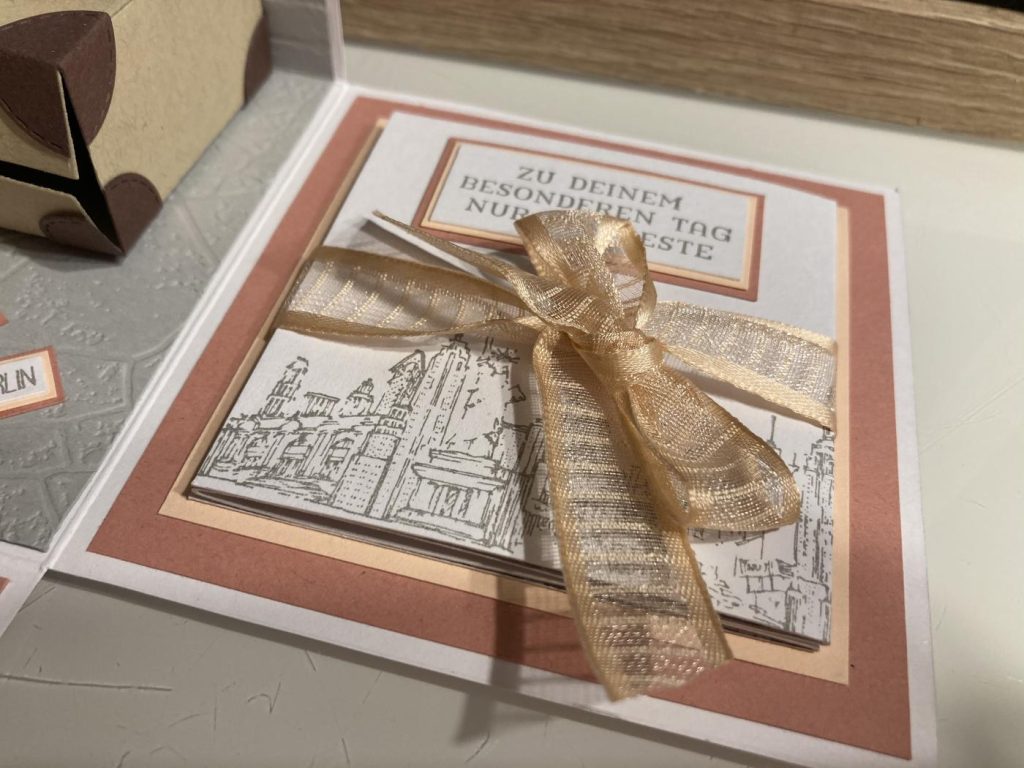 ZU DEINEM
BESONDEREN TAG
NUR
ESTE
RLIN